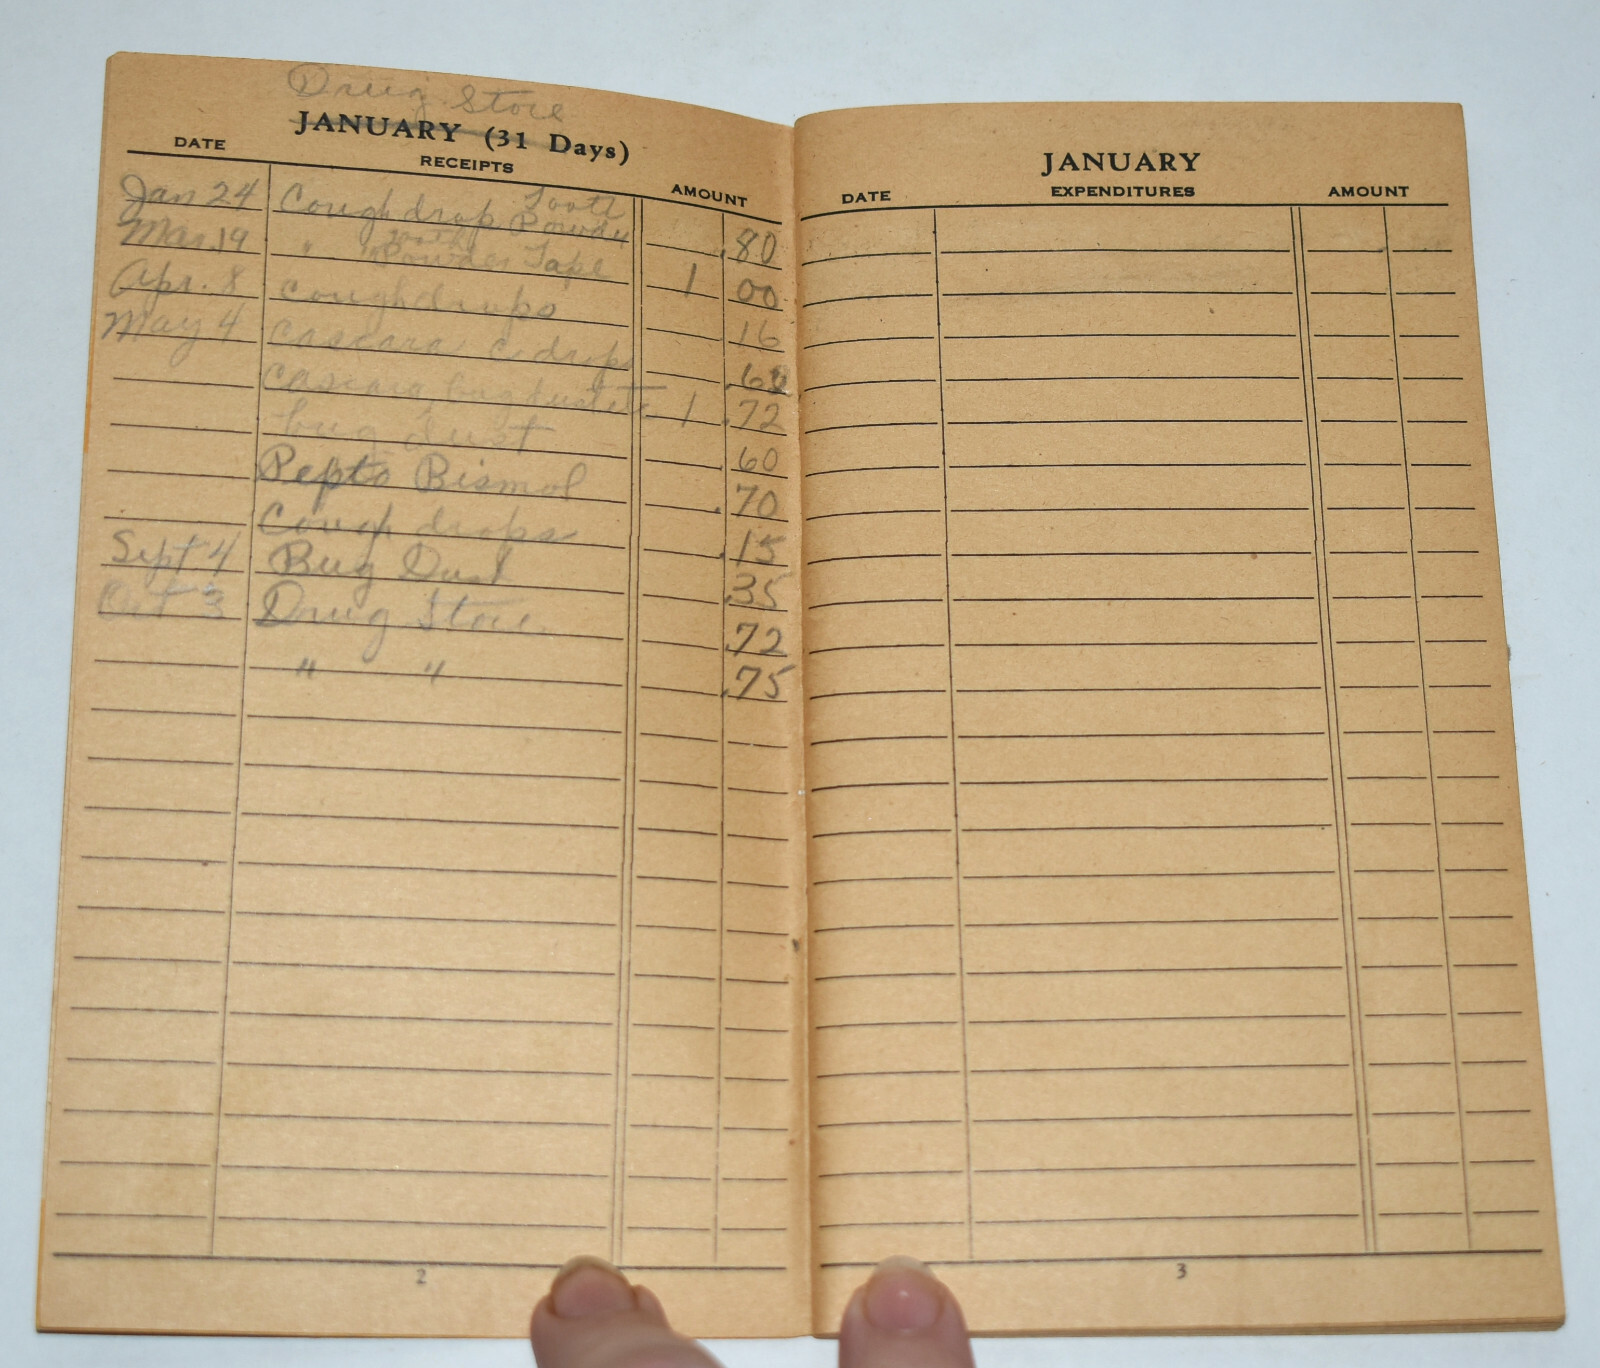 Drug Store
JANUARY (31 Days)
DATE RECEIPTS AMOUNT
Jan 24 Coughdrop Tooth Powder .80
Mar. 19 " Tooth Powder Tape 1 00
Apr. 8 coughdrops 16
May 4 cascara c. drops .6
cascara bug 1 .72
bug dust 60
Pepto Bismol .70
Cough drops .15
Sept 4 Bug Dust .35
Oct 3 Drug Store .72
" " .75
2
JANUARY
DATE EXPENDITURES AMOUNT
3